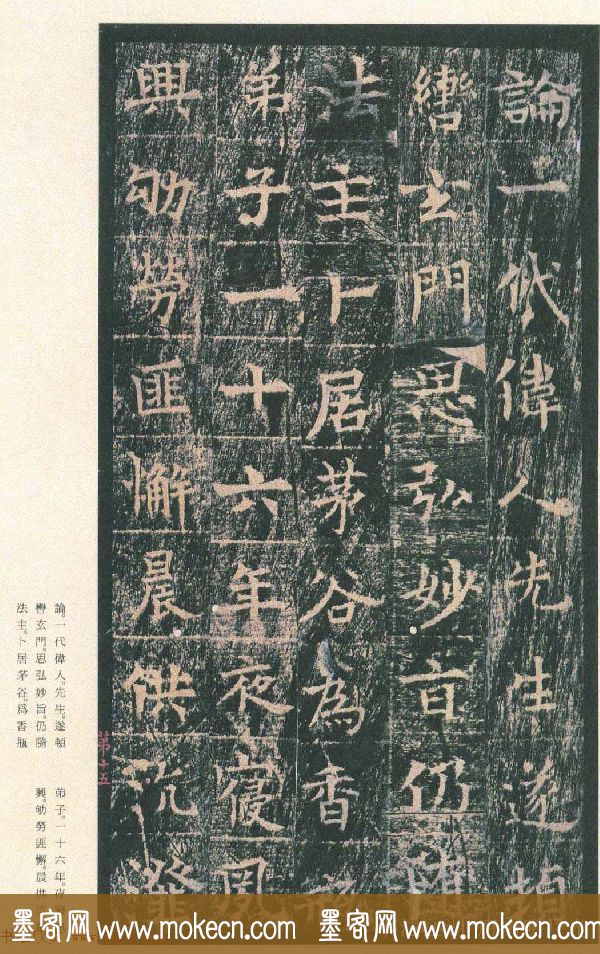 論一代偉人先生遂頓
轡玄門思弘妙旨仍隨
法主卜居茅谷為香瓶
弟子一十六年夜寢夙
興劬勞匪懈晨供沆瀣
論。一代偉人。先生。遂頓
轡玄門。思弘妙旨。仍隨
法主。卜居茅谷。爲香瓶
弟子。一十六年。夜
興。劬勞匪懈。晨供
第十五
墨客网 www.mokecn.com 墨客网 www.mokecn.com